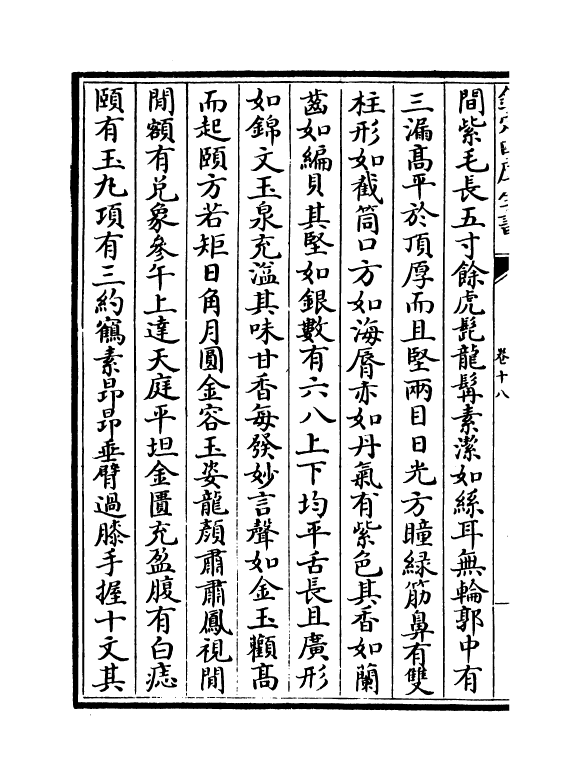 欽定四庫全書
卷十八
間紫毛長五寸餘虎髭龍髯素潔如絲耳無輪郭中有
三漏髙平於頂厚而且堅兩目日光方瞳緑筋鼻有雙
柱形如截筒口方如海脣赤如丹氣有紫色其香如蘭
齒如編貝其堅如銀數有六八上下均平舌長且廣形
如錦文玉泉充溢其味甘香每發妙言聲如金玉顴髙
而起頤方若矩日角月圓金容玉姿龍顔肅肅鳳視閒
閒額有兊象參午上達天庭平坦金匱充盈腹有白痣
頤有玉丸項有三約鶴素昻昻垂臂過膝手握十文其